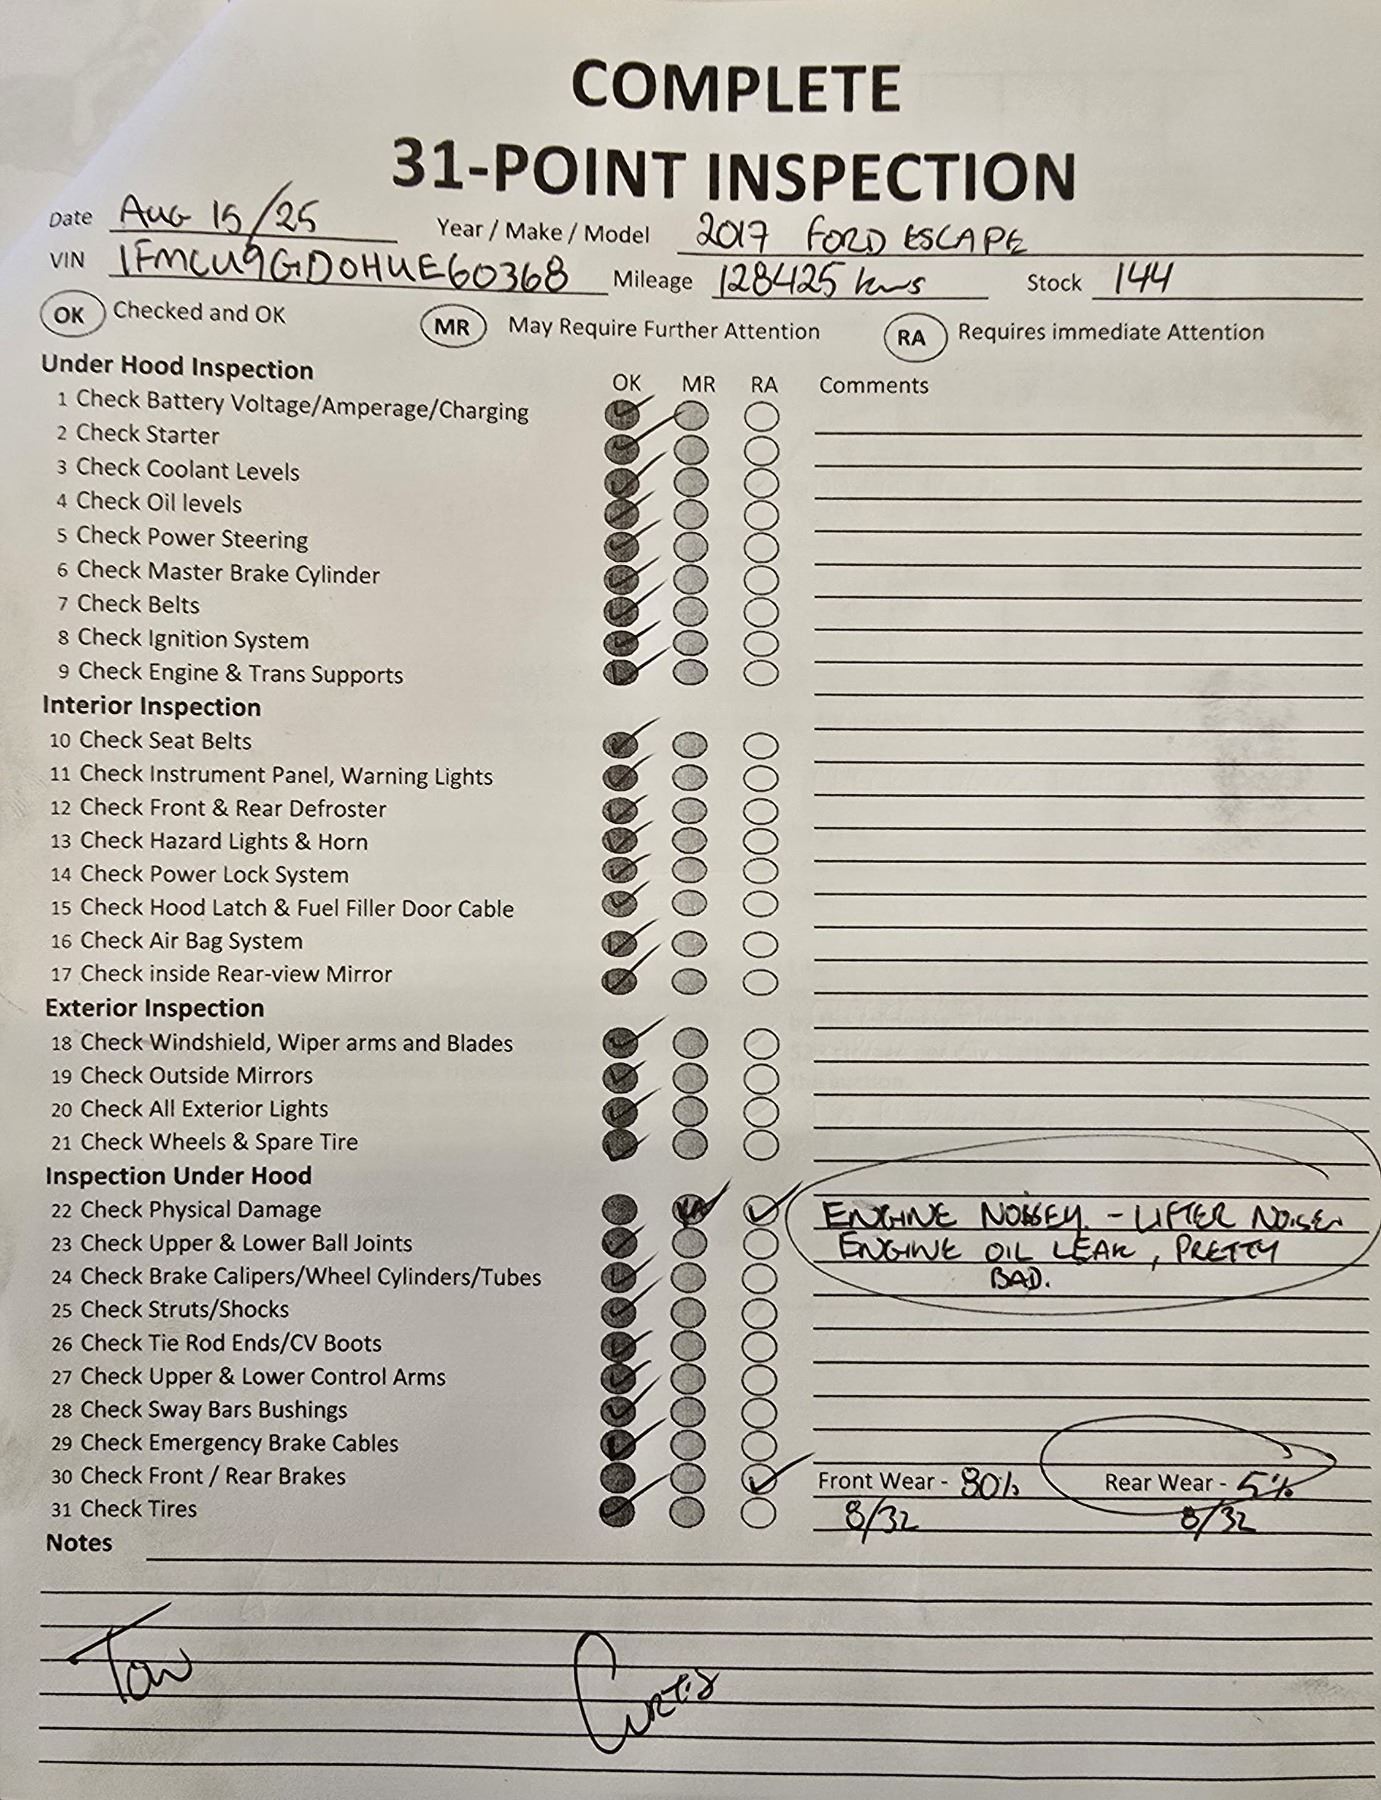 COMPLETE
31-POINT INSPECTION
Date AUG 15/25 Year / Make / Model 2017 FORD ESCAPE
VIN 1FMCU9GD0HUE60368 Mileage 128425 kms Stock 144
OK Checked and OK MR May Require Further Attention RA Requires immediate Attention
Under Hood Inspection OK MR RA Comments
1 Check Battery Voltage/Amperage/Charging
2 Check Starter
3 Check Coolant Levels
4 Check Oil levels
5 Check Power Steering
6 Check Master Brake Cylinder
7 Check Belts
8 Check Ignition System
9 Check Engine & Trans Supports
Interior Inspection
10 Check Seat Belts
11 Check Instrument Panel, Warning Lights
12 Check Front & Rear Defroster
13 Check Hazard Lights & Horn
14 Check Power Lock System
15 Check Hood Latch & Fuel Filler Door Cable
16 Check Air Bag System
17 Check inside Rear-view Mirror
Exterior Inspection
18 Check Windshield, Wiper arms and Blades
19 Check Outside Mirrors
20 Check All Exterior Lights
21 Check Wheels & Spare Tire
Inspection Under Hood
22 Check Physical Damage ENGINE NOISEY - LIFTER NOISE
23 Check Upper & Lower Ball Joints ENGINE OIL LEAK, PRETTY
24 Check Brake Calipers/Wheel Cylinders/Tubes BAD.
25 Check Struts/Shocks
26 Check Tie Rod Ends/CV Boots
27 Check Upper & Lower Control Arms
28 Check Sway Bars Bushings
29 Check Emergency Brake Cables
30 Check Front / Rear Brakes Front Wear - 80% Rear Wear - 5%
31 Check Tires 8/32 8/32
Notes
Curtis